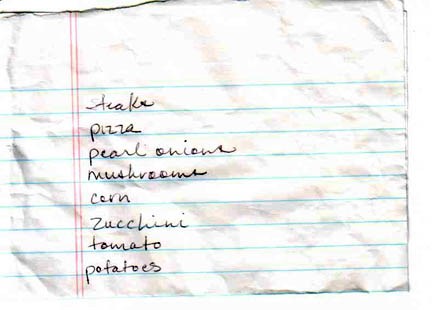 steaks
pizza
pearl onions
mushrooms
corn
zucchini
tomato
potatoes